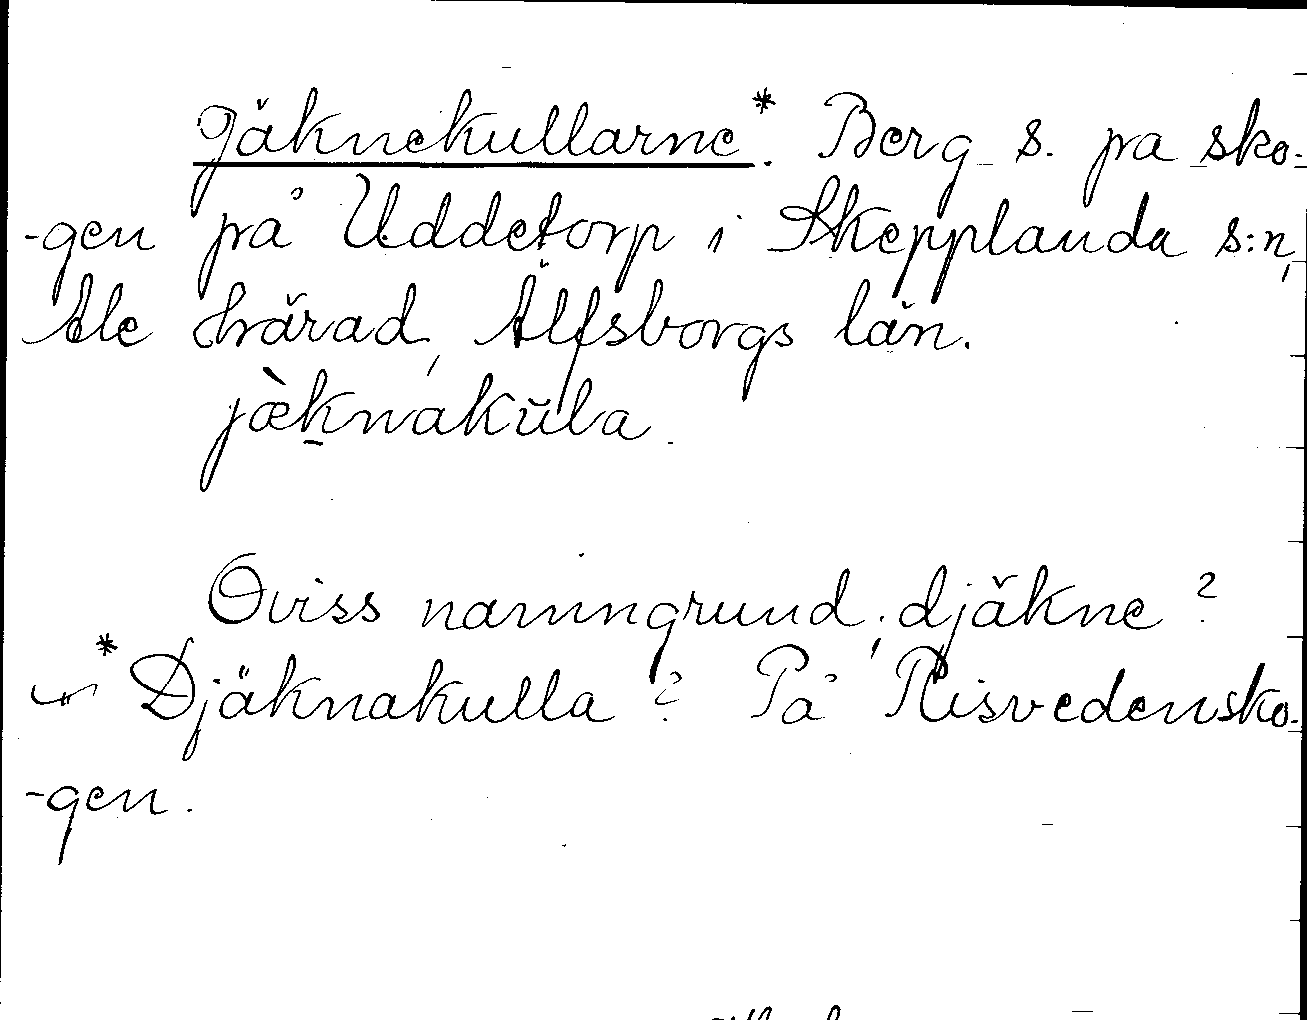 Jäknekullarne*. Berg s. på sko-
-gen på Uddetorp i Skepplanda s:n,
Ale härad, Älfsborgs län.
jæ̀knakŭla.
Oviss namngrund; djäkne?
* Djäknakulla? På Risvedensko-
-gen.